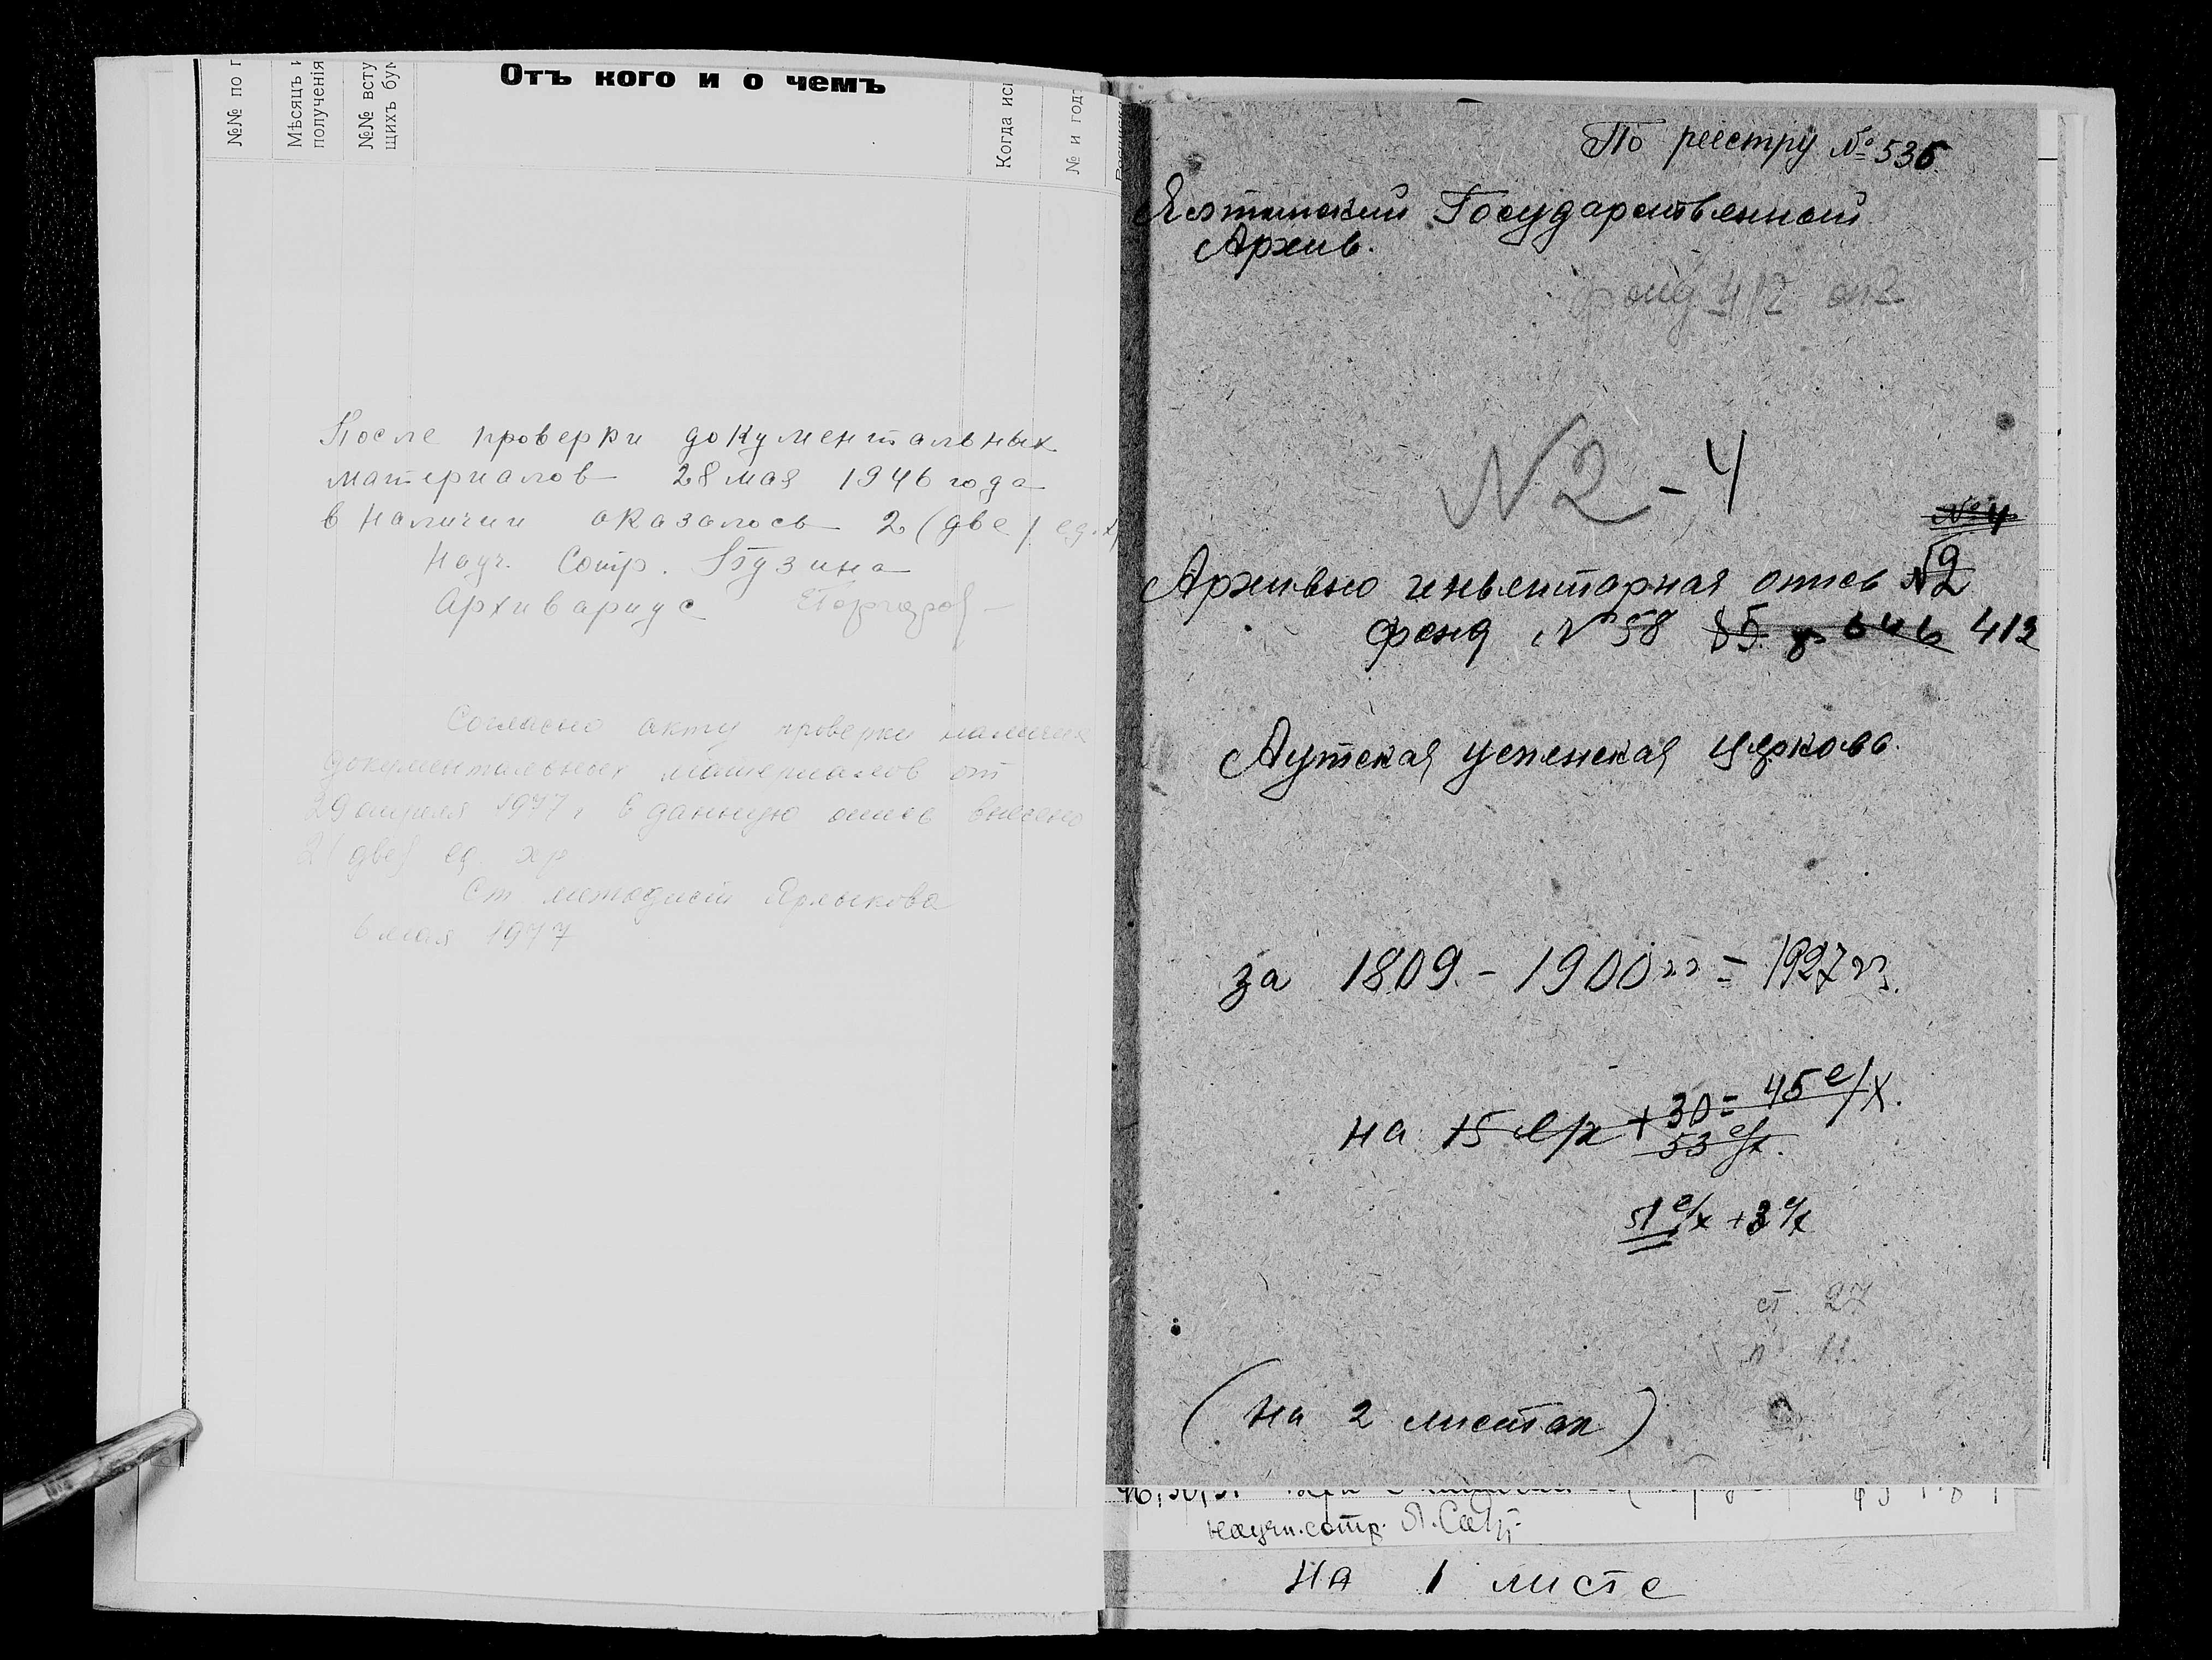 №№ по п
Мѣсяцъ и
полученія
№№ всту
щихъ бум
Отъ кого и о чемъ
Когда исп
№ и годъ
После проверки документальных
материалов 28 мая 1946 года
в наличии оказалось 2 (две) ед. х
Науч. Сотр. Бузина
Архивариус
Согласно акту проверки наличия
документальных материалов от
29 апреля 1977 г в данную опись внесено
2 (две) ед. хр
Ст. методист Ярлыкова
6 мая 1977
По реестру № 535
Ялтинский Государственный
Архив.
фонд 412 оп2
N2 - 4
№ 4
Архивно инвентарная опись N2
фонд N 58 85 646 412
Аутская успенская церковь.
за 1809 - 1900 гг = 1927 гг.
на 15 е/х + 30 = 45 е/х.
53 е/х.
51 е/х + 3 е/х
ст. 27
п 11
(на 2 листах)
научн. сотр.
на 1 листе